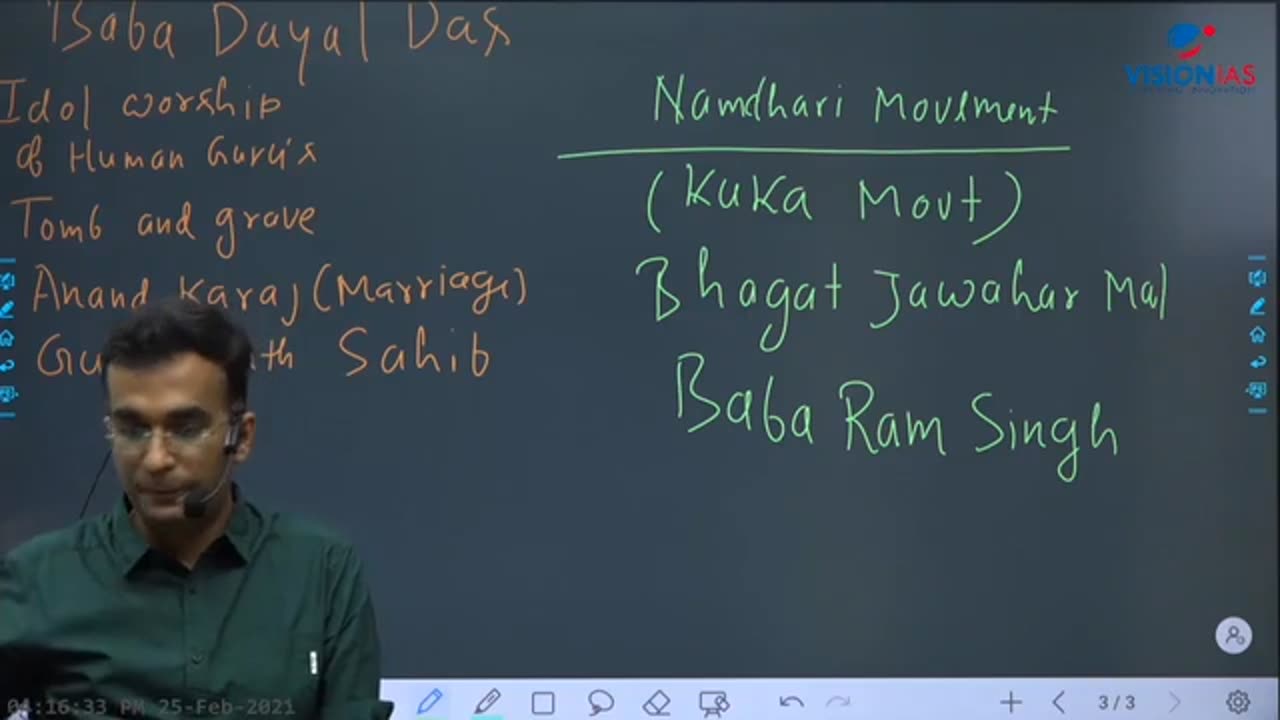 Baba Dayal Das
Idol worship
of Human Guru's
Tomb and grave
Anand Karaj (Marriage)
Gu th Sahib
Namdhari Movement
(Kuka Movt)
Bhagat Jawahar Mal
Baba Ram Singh
VISIONIAS
04:16:33 PM 25-Feb-2021
3/3